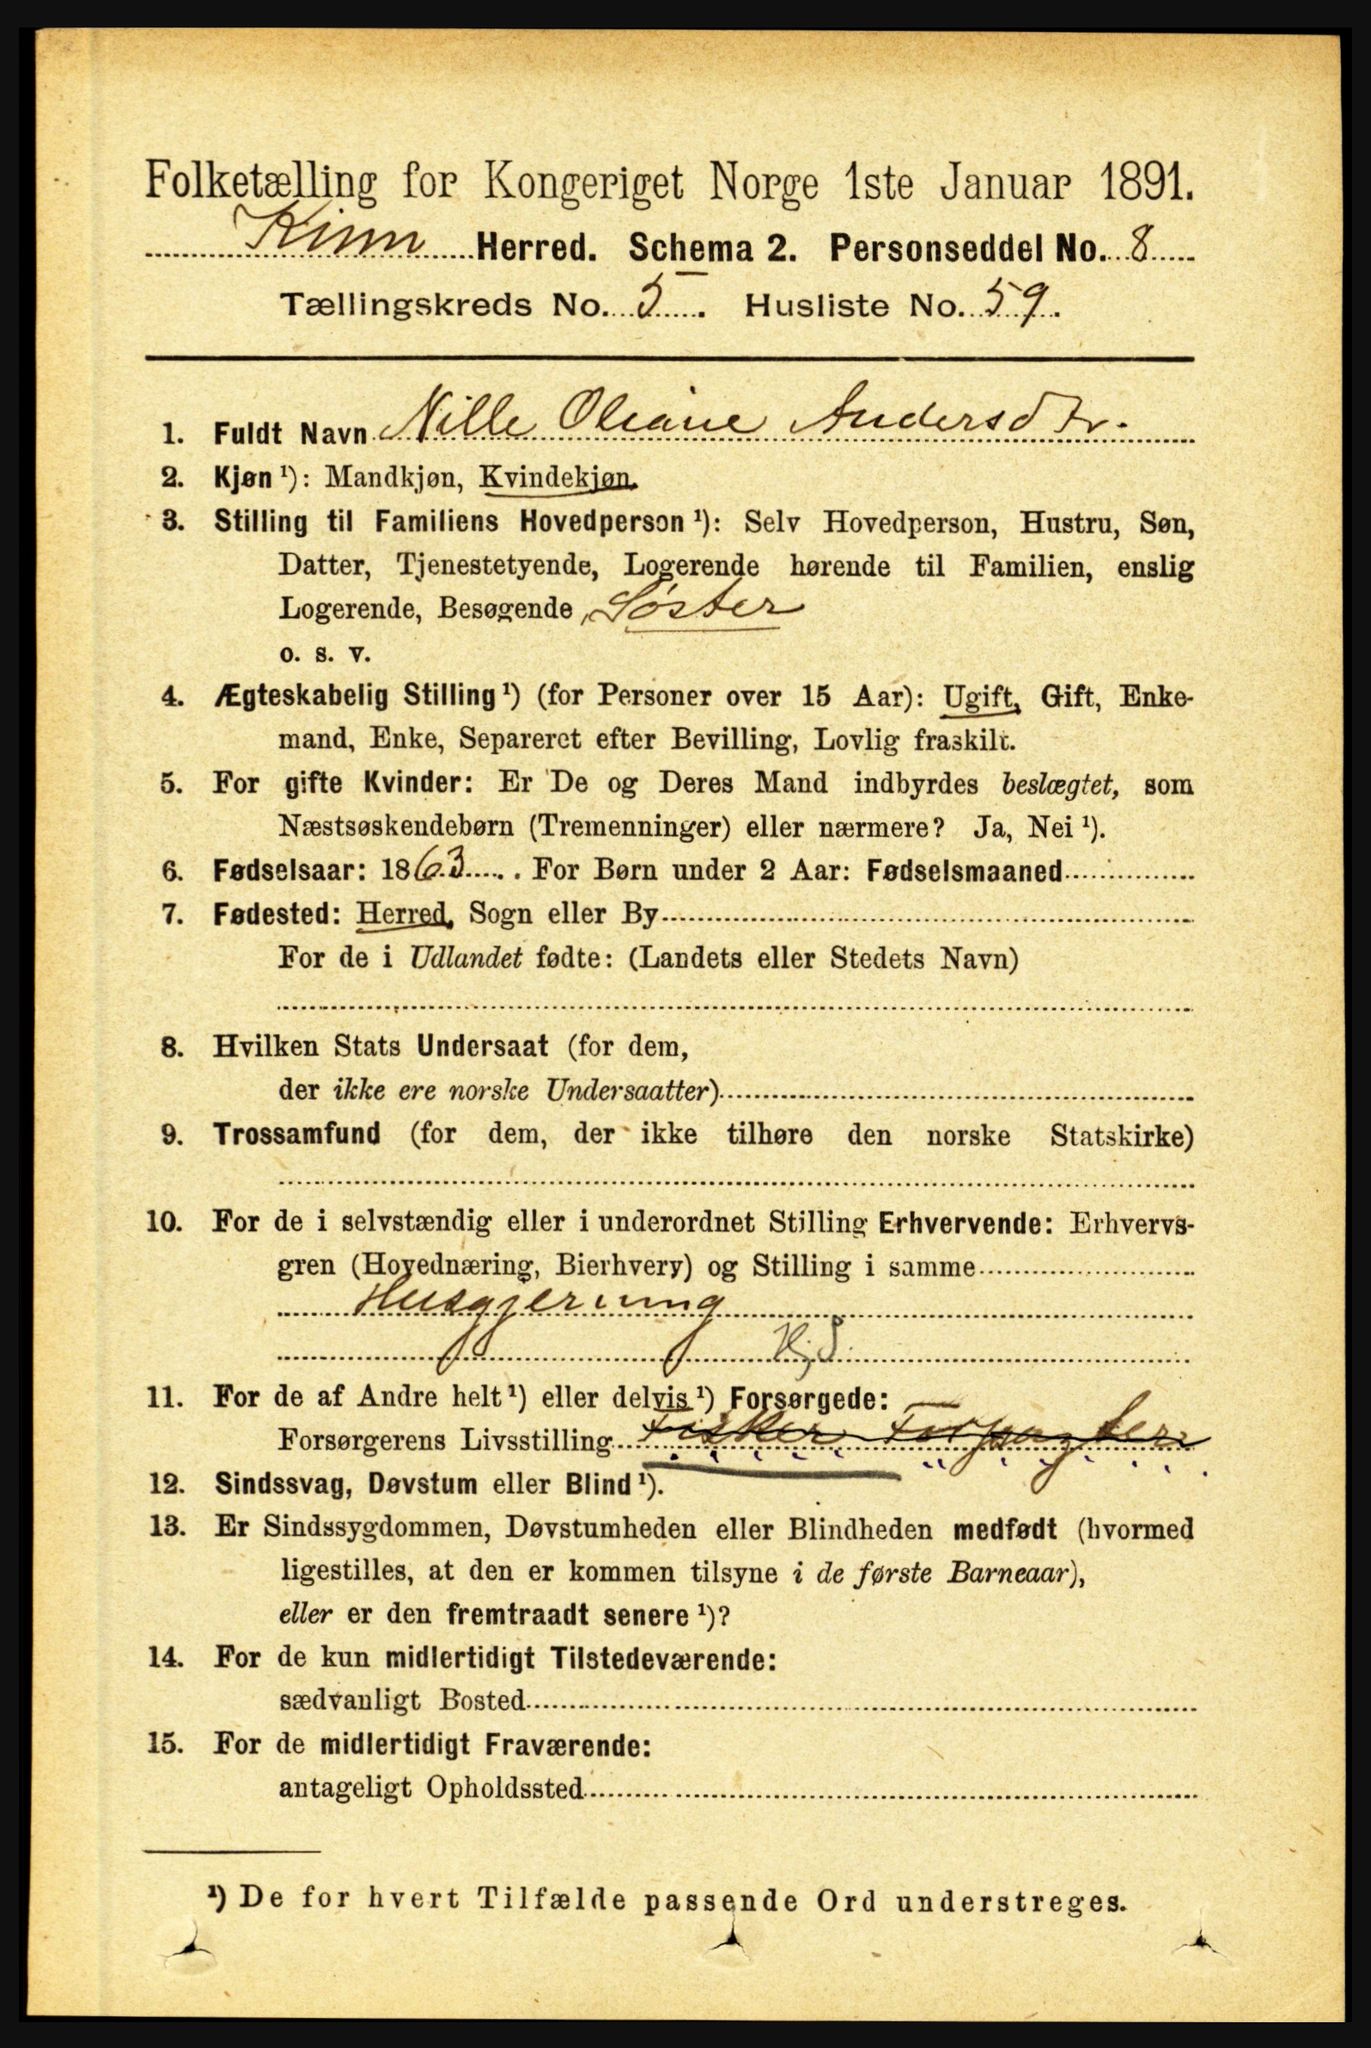 Folketælling for Kongeriget Norge 1ste Januar 1891.
Kinn Herred. Schema 2. Personseddel No. 8
Tællingskreds No. 5. Husliste No. 59.
1. Fuldt Navn Nille Oliane Andersdtr.
2. Kjøn ¹): Mandkjøn, Kvindekjøn.
3. Stilling til Familiens Hovedperson ¹): Selv Hovedperson, Hustru, Søn,
Datter, Tjenestetyende, Logerende hørende til Familien, enslig
Logerende, Besøgende, Søster
o. s. v.
4. Ægteskabelig Stilling ¹) (for Personer over 15 Aar): Ugift, Gift, Enke-
mand, Enke, Separeret efter Bevilling, Lovlig fraskilt.
5. For gifte Kvinder: Er De og Deres Mand indbyrdes beslægtet, som
Næstsøskendebørn (Tremenninger) eller nærmere? Ja, Nei ¹).
6. Fødselsaar: 1863. For Børn under 2 Aar: Fødselsmaaned
7. Fødested: Herred, Sogn eller By
For de i Udlandet fødte: (Landets eller Stedets Navn)
8. Hvilken Stats Undersaat (for dem,
der ikke ere norske Undersaatter)
9. Trossamfund (for dem, der ikke tilhøre den norske Statskirke)
10. For de i selvstændig eller i underordnet Stilling Erhvervende: Erhvervs-
gren (Hovednæring, Bierhverv) og Stilling i samme
Husgjerning
11. For de af Andre helt ¹) eller delvis ¹) Forsørgede:
Forsørgerens Livsstilling Fisker Forpagter
12. Sindssvag, Døvstum eller Blind ¹).
13. Er Sindssygdommen, Døvstumheden eller Blindheden medfødt (hvormed
ligestilles, at den er kommen tilsyne i de første Barneaar),
eller er den fremtraadt senere ¹)?
14. For de kun midlertidigt Tilstedeværende:
sædvanligt Bosted
15. For de midlertidigt Fraværende:
antageligt Opholdssted
¹) De for hvert Tilfælde passende Ord understreges.